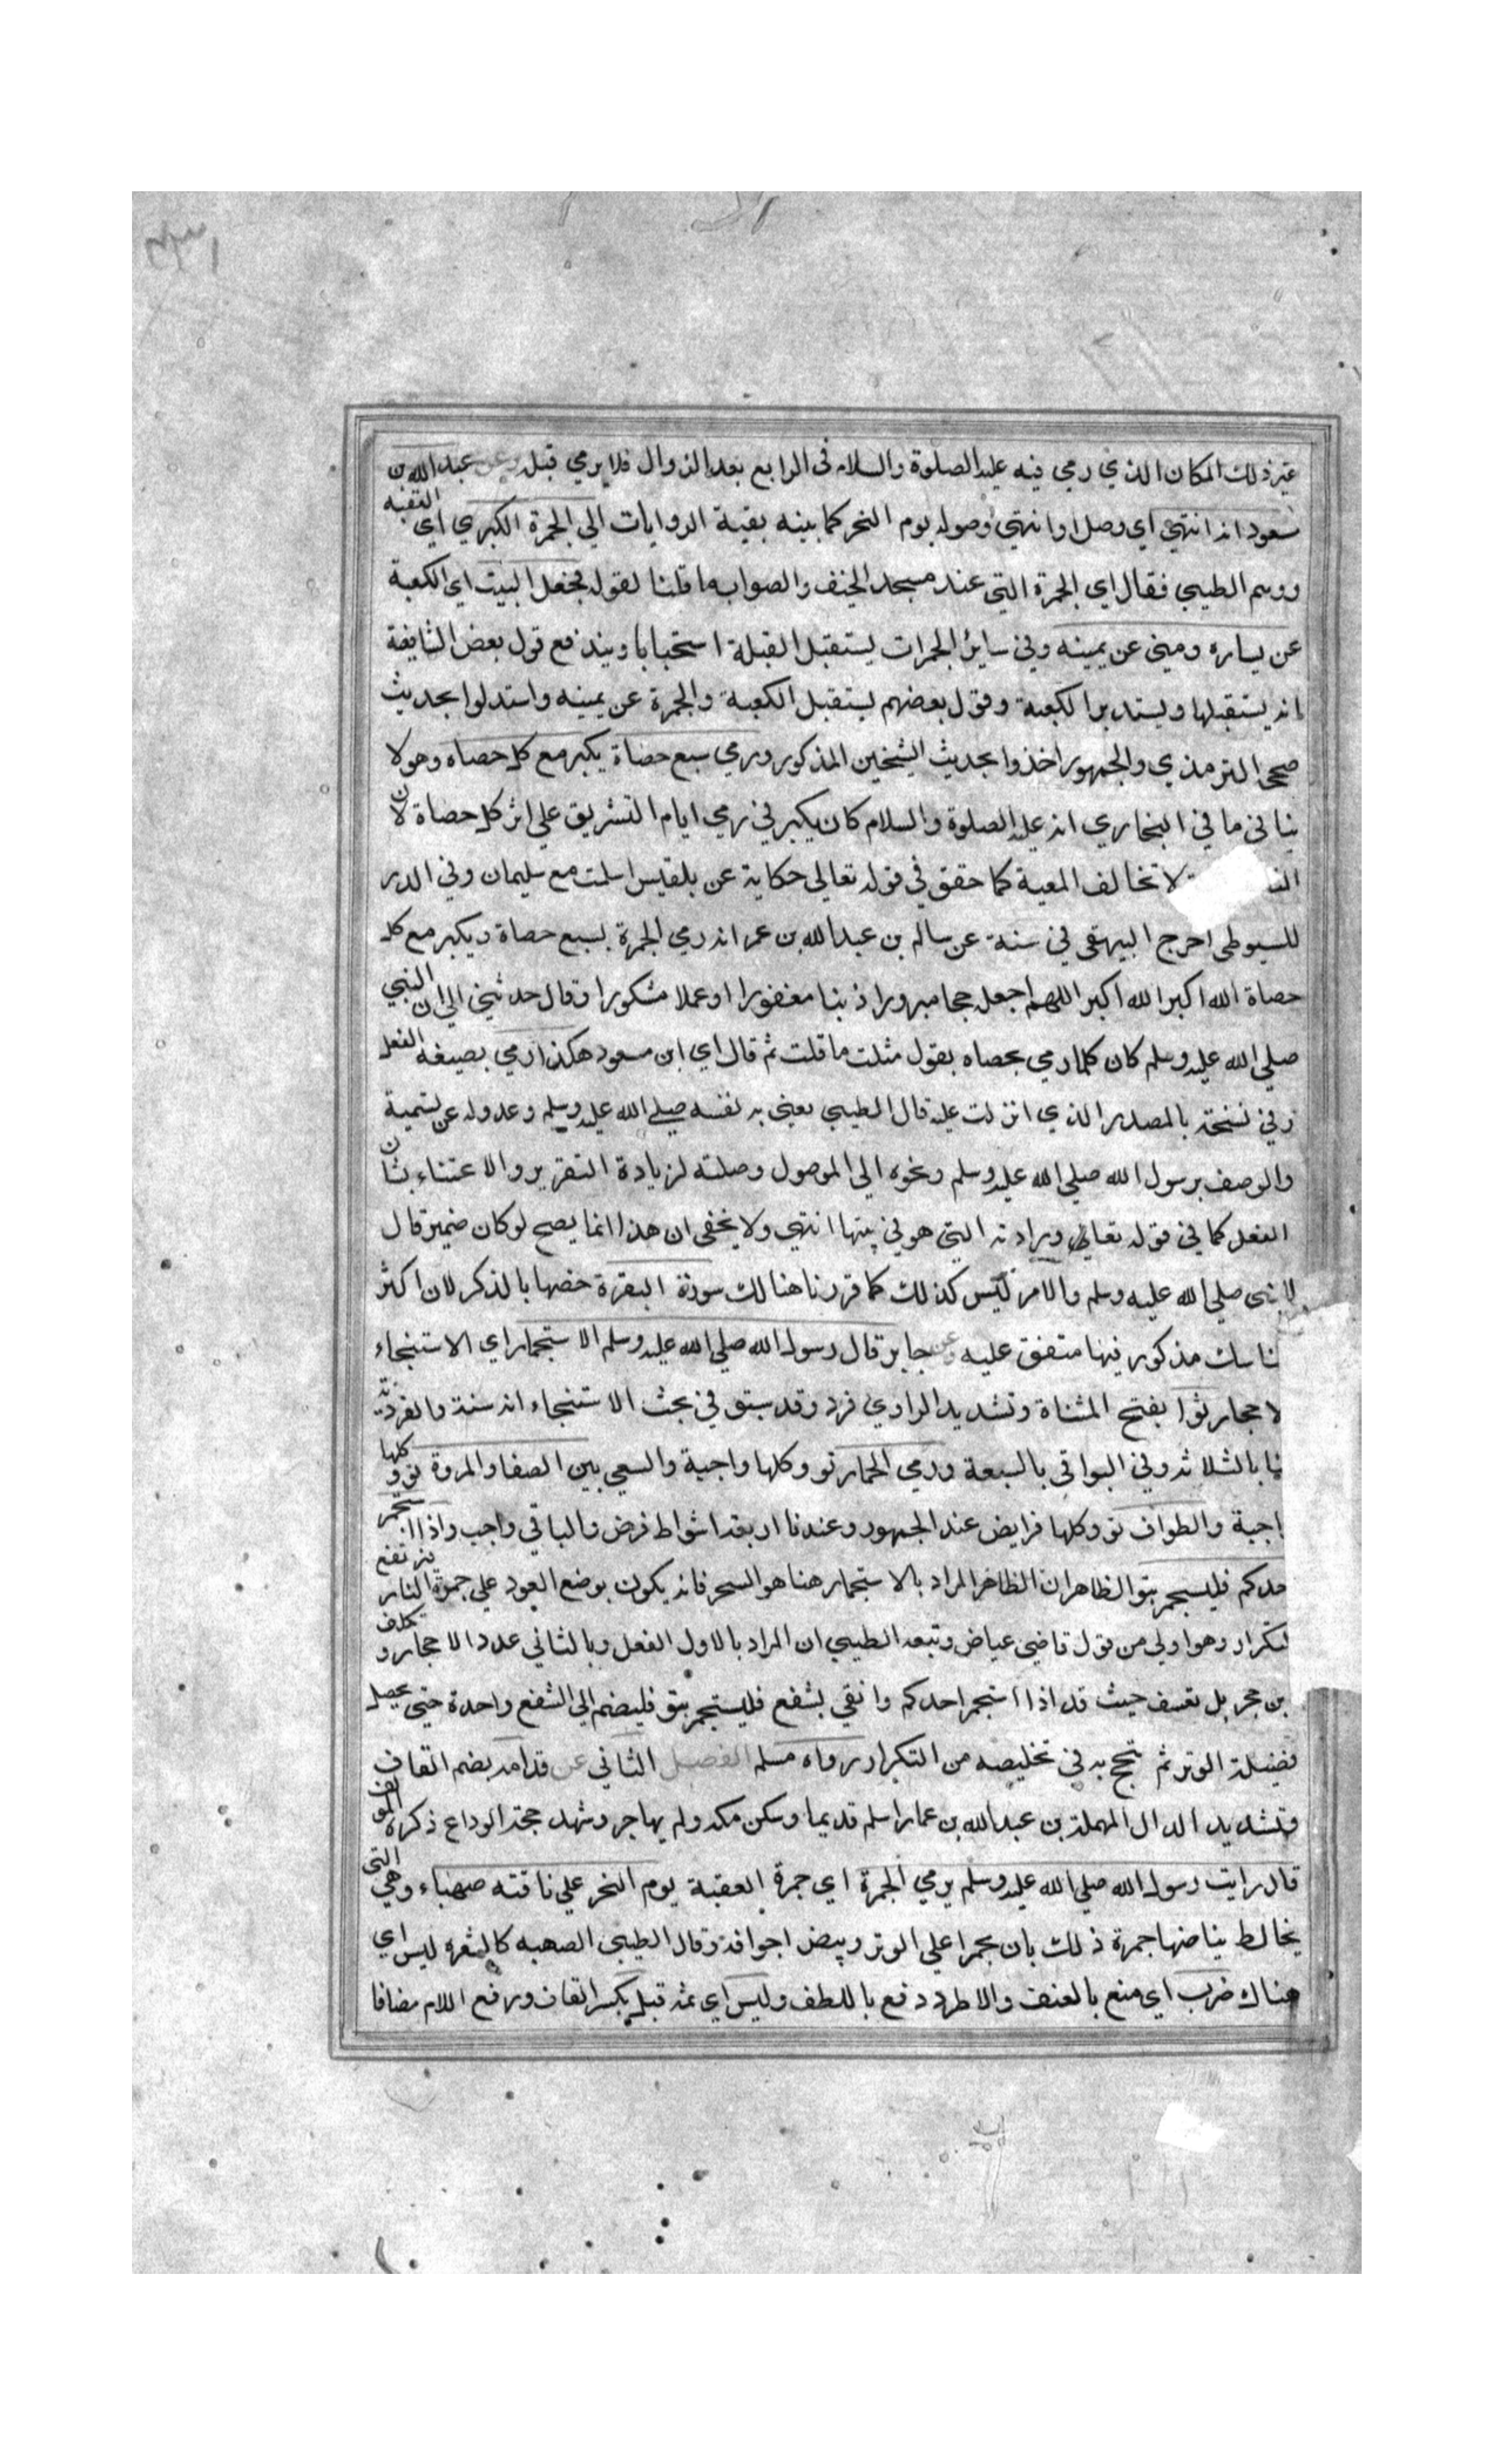 غير ذلك المكان الذي رمي فيه عليه الصلوة والسلام في الرابع بعد الزوال فلا يرمي قبله وعن عبد الله بن
مسعود انه انتهي اي وصل او انتهي وصوله يوم النحر كما بينه بقية الروايات الي الجمرة الكبري اي العقبة
ووهم الطيبي فقال اي الجمرة التي عند مسجد الخيف والصواب ما قلنا لقوله فجعل البيت اي الكعبة
عن يساره ومني عن يمينه وفي ساير الجمرات يستقبل القبلة استحبابا ويندفع قول بعض الشافعة
انه يستقبلها ويستدبر الكعبة وقول بعضهم يستقبل الكعبة والجمرة عن يمينه واستدلوا بحديث
صححه الترمذي والجمهور اخذوا بحديث الشيخين المذكور ورمي سبع حصاة يكبر مع كل حصاه وهو لا
ينافي ما في البخاري انه عليه الصلوة والسلام كان يكبر في رمي ايام التشريق علي اثر كل حصاة لان
لا تخالف المعية كما حقق في قوله تعالي حكاية عن بلقيس اسلمت مع سليمان وفي الدر
للسيوطي اخرج البيهقي في سننه عن سالم بن عبد الله بن عمر انه رمي الجمرة بسبع حصاة ويكبر مع كل
حصاة الله اكبر الله اكبر اللهم اجعل حجا مبرورا ذنبا مغفورا او عملا مشكورا وقال حدثني ابي ان النبي
صلي الله عليه وسلم كان كلما رمي بحصاه يقول مثلت ما قلت ثم قال اي ابن مسعود هكذا رمي بصيغة الفعل
وفي نسخة بالمصدر الذي انزلت عليه قال الطيبي يعني به نفسه صلي الله عليه وسلم وعدوله عن تسمية
والوصف برسول الله صلي الله عليه وسلم ونحوه الي الموصول وصلته لزيادة التقرير والاعتناء بشان
الفعل كما في قوله تعالي وراودته التي هو في بيتها انتهي ولا يخفي ان هذا انما يصح لو كان ضمير قال
للنبي صلي الله عليه وسلم والامر ليس كذلك كما قررنا هنالك سورة البقرة خصها بالذكر لان اكثر
المناسك مذكور فيها متفق عليه وعن جابر قال رسول الله صلي الله عليه وسلم الاستجمار اي الاستنجاء
بالاحجار توا بفتح المثناة وتشديد الراوي فرد وقد سبق في بحث الاستنجاء انه سنة والفردية
بالثلاثة وفي البواقي بالسبعة ورمي الجمار تو وكلها واجبة والسعي بين الصفا والمروة تو وكلها
واجبة والطواف تو وكلها فرايض عند الجمهور وعندنا اربعة اشواط فرض والباقي واجب واذا استجمر
احدكم فليستجمر بتو الظاهر ان الظاهر المراد بالاستجمار هنا هو السحر فانه يكون بوضع العود علي جمرة النار فيرتفع
التكرار وهو اولي من قول قاضي عياض وتبعه الطيبي ان المراد بالاول الفعل وبالثاني عدد الاحجار وتكلف
ابن حجر بل تعسف حيث قال اذا استجمر احدكم وانقي بشفع فليستجمر بتو فليضم الي الشفع واحدة حتي يحصل
فضيلة الوتر ثم تبجح به في تخليصه من التكرار رواه مسلم الفصل الثاني عن قدامة بضم القاف
وتشديد الدال المهملة بن عبد الله بن عمار اسلم قديما وسكن مكة ولم يهاجر وشهد حجة الوداع ذكره المؤلف
قال رايت رسول الله صلي الله عليه وسلم يرمي الجمرة اي جمرة العقبة يوم النحر علي ناقته صهباء وهي التي
يخالط بياضها حمرة ذلك بان يحمر اعلي الوبر ويبيض اجوافه وقال الطيبي الصهبه كالشقره ليس اي
هناك ضرب اي منع بالعنف ولا طرد دفع باللطف وليس اي ثمه قبل بكسر القاف ورفع اللام مضافا